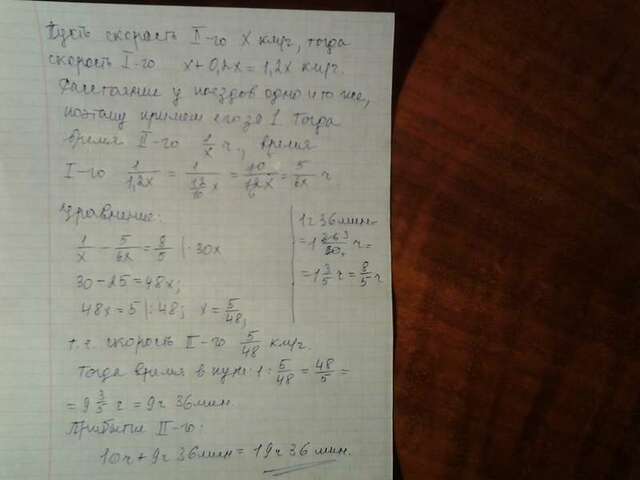 Пусть скорость II-го x км/ч, тогда
скорость I-го x+0,2x=1,2x км/ч.
Расстояние у поездов одно и то же,
поэтому примем его за 1. Тогда
время II-го 1/x ч, время
I-го 1/1,2x = 1/(12/10 x) = 10/12x = 5/6x ч
Уравнение:
1/x - 5/6x = 8/5 |·30x
30-25=48x;
48x=5 |:48; x=5/48;
1ч 36мин=
=1 36/60 ч=
=1 3/5 ч = 8/5 ч
т.е. скорость II-го 5/48 км/ч.
Тогда время в пути: 1:5/48 = 48/5 =
= 9 3/5 ч = 9ч 36мин.
Прибытие II-го:
10ч+9ч 36мин = 19ч 36 мин.